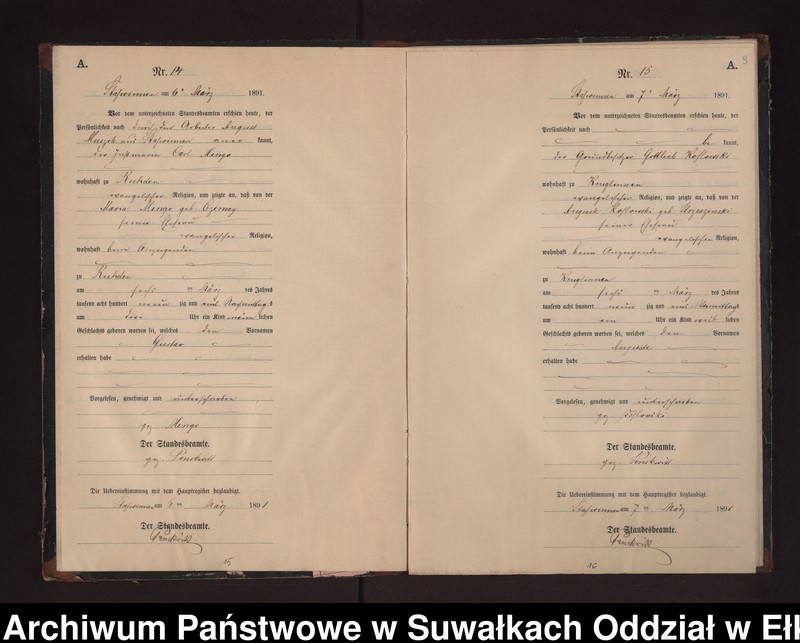 A.
Nr. 14
am 6ten März 1891.
Vor dem unterzeichneten Standesbeamten erschien heute, der
Persönlichkeit nach durch den Arbeiter August
aus kannt,
der Instmann Carl Mengo
wohnhaft zu
evangelischer Religion, und zeigte an, daß von der
Maria Mengo geb.
seiner Ehefrau
evangelischer Religion,
wohnhaft beim Anzeigenden
zu
am sechs ten März des Jahres
tausend acht hundert neun zig und eins Nachmittags
um drei Uhr ein Kind männlichen
Geschlechts geboren worden sei, welches den Vornamen
Gustav
erhalten habe
Vorgelesen, genehmigt und unterschrieben
gez. Mengo
Der Standesbeamte.
gez.
Die Uebereinstimmung mit dem Hauptregister beglaubigt.
am 6ten März 1891
Der Standesbeamte.
15
A.
9
Nr. 15
am 7ten März 1891.
Vor dem unterzeichneten Standesbeamten erschien heute, der
Persönlichkeit nach
be kannt,
der Grundbesitzer Gottlieb Koslowski
wohnhaft zu Kruglinnen
evangelischer Religion, und zeigte an, daß von der
Auguste Koslowski geb.
seiner Ehefrau
evangelischer Religion,
wohnhaft beim Anzeigenden
zu Kruglinnen
am sechs ten März des Jahres
tausend acht hundert neun zig und eins Vormittags
um ein Uhr ein Kind weiblichen
Geschlechts geboren worden sei, welches den Vornamen
Auguste
erhalten habe
Vorgelesen, genehmigt und unterschrieben
gez. Koslowski
Der Standesbeamte.
gez.
Die Uebereinstimmung mit dem Hauptregister beglaubigt.
am 7ten März 1891
Der Standesbeamte.
16
Archiwum Państwowe w Suwałkach Oddział w Eł